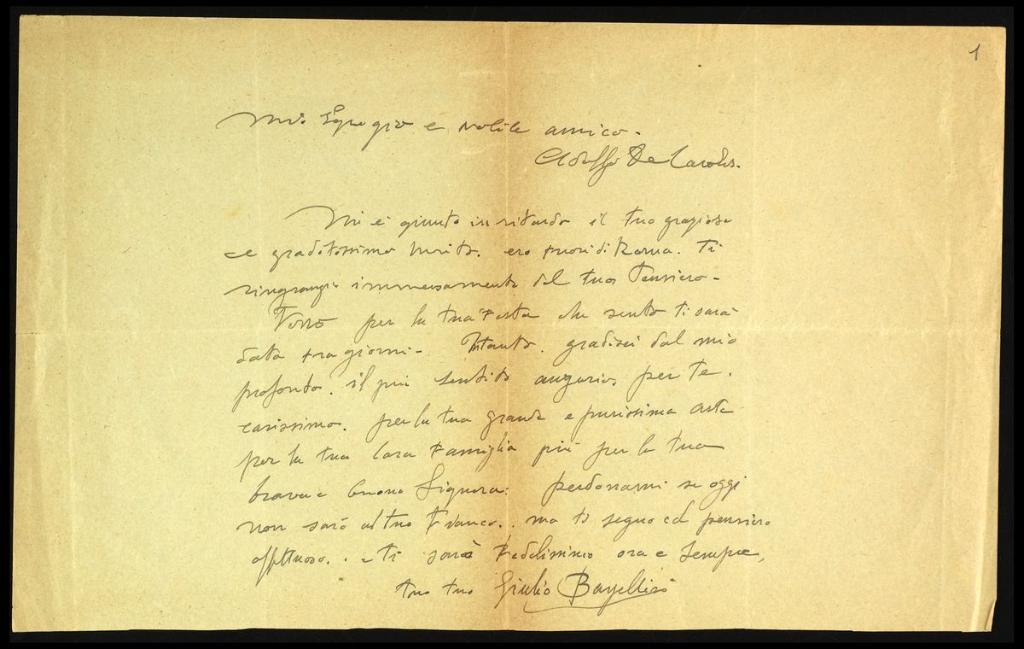 1
Mio Egregio e nobile amico.
Adolfo De Carolis.
Mi è giunto in ritardo il tuo grazioso
e graditissimo invito. ero fuori di Roma. Ti
ringrazio immensamente del tuo Pensiero -
per la tua Festa che sento ti sarà
data fra giorni - Intanto. gradisci dal mio
profondo. il più sentito augurio, per te.
carissimo. per la tua grande e purissima arte
per la tua Cara Famiglia più per la tua
brava e buona Signora: perdonami se oggi
non sarò al tuo Fianco.. ma ti seguo col pensiero
affettuoso. . e ti sarò Fedelissimo ora e sempre,
tuo tuo Giulio